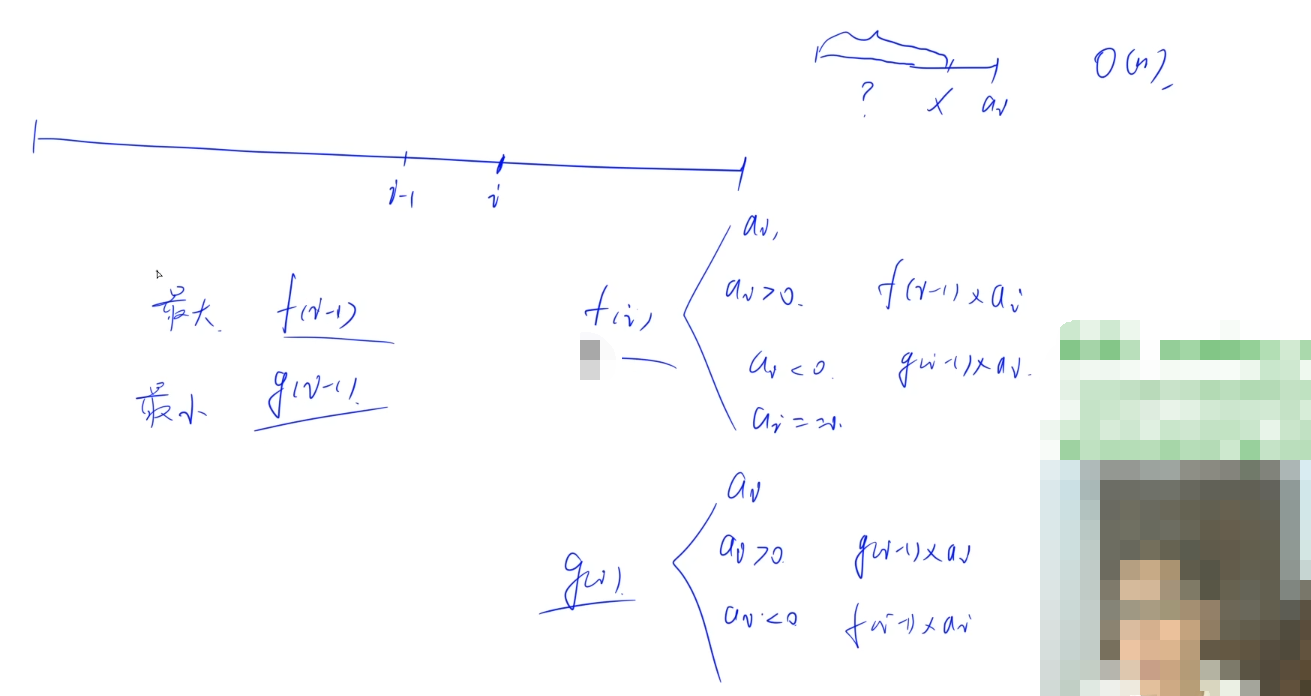 ? × aᵢ O(n)
i-1 i
最大 f(i-1)
最小 g(i-1)
f(i)
aᵢ,
aᵢ>0. f(i-1)×aᵢ
aᵢ<0. g(i-1)×aᵢ.
aᵢ=
g(i)
aᵢ
aᵢ>0 g(i-1)×aᵢ
aᵢ<0 f(i-1)×aᵢ